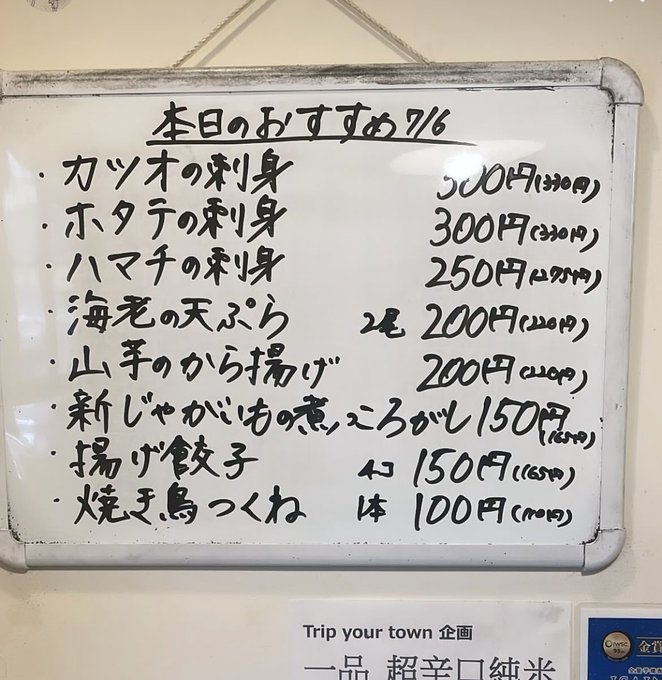 本日のおすすめ7/6
・カツオの刺身 300円(330円)
・ホタテの刺身 300円(330円)
・ハマチの刺身 250円(275円)
・海老の天ぷら 2尾 200円(220円)
・山芋のから揚げ 200円(220円)
・新じゃがいもの煮っころがし 150円(165円)
・揚げ餃子 4コ 150円(165円)
・焼き鳥つくね 1本 100円(110円)
Trip your town 企画
一品 超辛口純米
IWSC